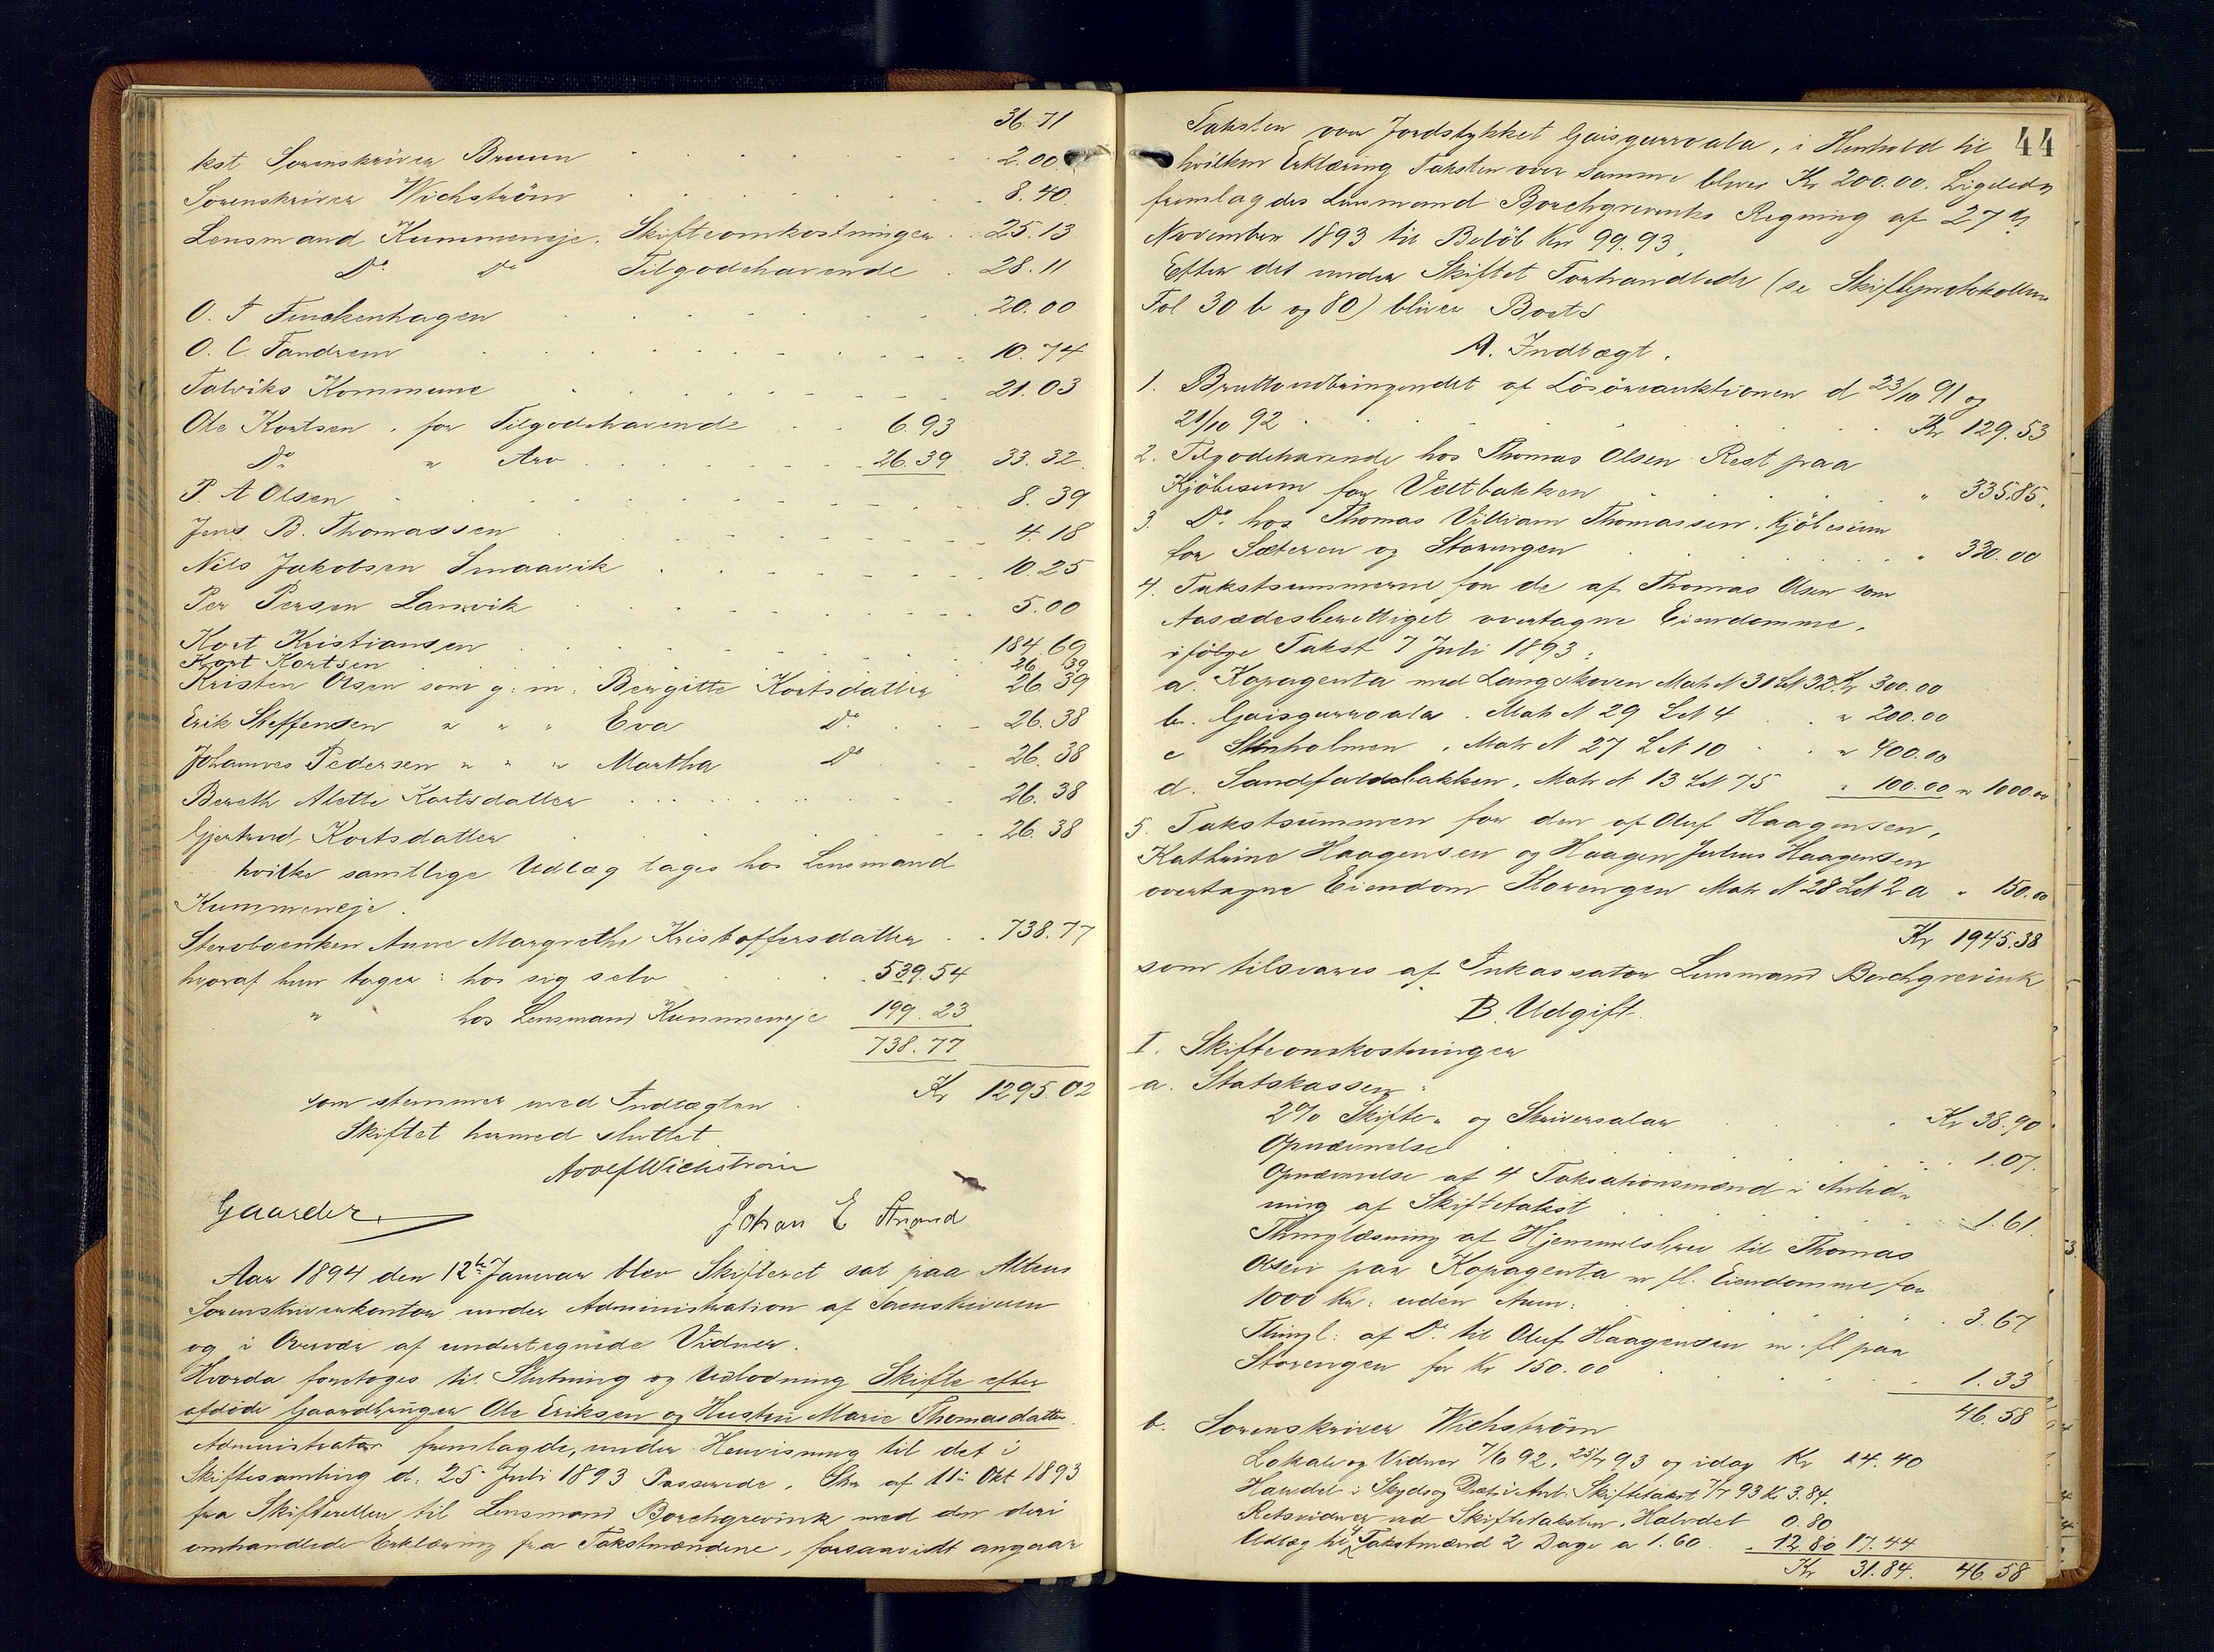 36.71
kst Sorenskriver Bruun 2.00
Sorenskriver Wichström 8.40
Lensmand Kummeneje. Skifteomkostninger 25.13
Do Do Tilgodehavende 28.11
O. F Finckenhagen 20.00
O. C. Fandrem 10.74
Talviks Kommune 21.03
Ole Kortsen, for Tilgodehavende 6.93
Do " Arv 26.39 33.32
P. A Olsen 8.39
Jens B. Thomassen 4.18
Nils Jakobsen Smaavik 10.25
Per Persen Lanvik 5.00
Kort Kristiansen 184.69
Kort Kortsen 26.39
Kristen Olsen som g: m: Bergitte Kortsdatter 26.39
Erik Steffensen " " " Eva Do 26.38
Johannes Pedersen " " " Martha Do 26.38
Bereth Alette Kortsdatter 26.38
Gjertrud Kortsdatter 26.38
hvilke samtlige Udlæg tages hos Lensmand
Kummeneje.
Stervboenken Anne Margrethe Kristoffersdatter 738.77
hvoraf hun tager: hos sig selv 539.54
" hos Lensmand Kummeneje 199.23
738.77
Kr 1295.02
som stemmer med Indtægten.
Skiftet hermed sluttet.
Adolf Wichström
Gaarder. Johan E Strand
Aar 1894 den 12te Januar blev Skifteret sat paa Altens
Sorenskriverkontor under Administration af Sorenskriveren
og i Overvær af undertegnede Vidner.
Hvorda foretoges til Slutning og Udlodning Skifte efter
afdøde Gaardbruger Ole Eriksen og Hustru Marie Thomasdatter.
Administrator fremlagde, under Henvisning til det i
Skiftesamling d. 25 Juli 1893 Passerede, Skr af 11te Okt 1893
fra Skifteretten til Lensmand Borchgrevink med den deri
omhandlede Erklæring fra Takstmændene, forsaavidt angaar
44
Taksten over Jordstykket Gaisgurroala, i Henhold til
hvilken Erklæring Taksten over samme bliver Kr 200.00. Ligeledes
fremlagdes Lensmand Borchgrevinks Regning af 27de
November 1893 til Beløb Kr 99.93.
Efter det under Skiftet Forhandlede (se Skifteprotokollen
Fol 30 b og 80) bliver Boets
A. Indtægt.
1. Bruttoudbringendet af Lösöreauktionen d 23/10 91 og
21/10 92 Kr 129.53
2. Tilgodehavende hos Thomas Olsen Rest paa
Kjöbesum for Veltbakken " 335.85.
3. Do. hos Thomas Villiam Thomassen. Kjöbesum
for Sæteren og Storengen " 330.00
4. Takstsummerne for de af Thomas Olsen som
Aasædesberettiget overtagne Eiendomme,
ifølge Takst 7 Juli 1893:
a. Kopagenta med Langskoven Matr N 31 LN 32 Kr 300.00
b. Gaisgurroala. Matr N 29 LN 4 " 200.00
c Stenholmen, Matr N 27 LN 10 " 400.00
d. Sandfaldsbakken, Matr N 13 LN 75 " 100.00 " 1000.00
5. Takstsummen for den af Oluf Haagensen,
Kathrine Haagensen og Haagen Julius Haagensen
overtagne Eiendom Storengen Matr N 28 LN 2 a " 150.00
Kr 1945.38
som tilsvares af Inkassator Lensmand Borchgrevink
B. Udgift.
I. Skifteomkostninger
a. Statskassen:
2% Skifte- og Skriversalær Kr 38.90
Opnævnelse 1.07.
Opnævnelse af 4 Taksationsmænd i Anled-
ning af Skiftetakst 1.61.
Thinglæsning af Hjemmelsbrev til Thomas
Olsen paa Kopagenta m fl. Eiendomme for
1000 Kr: uden Aum: 3.67
Thingl: af Do. til Oluf Haagensen m. fl paa
Storengen for Kr 150.00 1.33
46.58
b. Sorenskriver Wichström
Lokale og Vidner 7/6 92, 25/7 93 og idag Kr 14.40
Halvdel i Skyds og Diæt i Anl. Skiftetakst 7/7 93 K 3.84.
Retsvidner ved Skiftetaksten, Halvdel 0.80
Udlæg til 4 Takstmænd 2 Dage a 1.60 " 12.80 17.44
Kr 31.84. 46.58